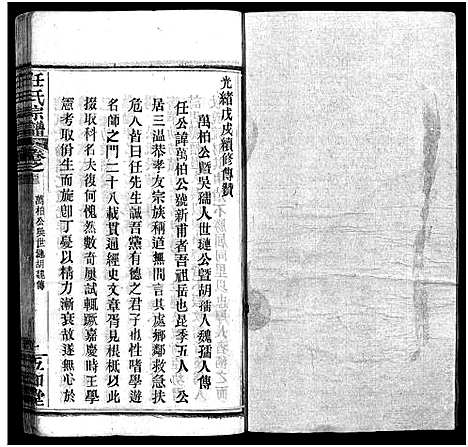 光緒戊戌續修傳贊
萬柏公暨吳孺人世槤公暨胡孺人魏孺人傳
任公諱萬柏公號新甫者吾祖岳也昆季五人公
居三溫恭孝友宗族稱道無間言其處鄉鄰救急扶
危人皆曰任先生誠吾黨有德之君子也性嗜學遊
名師之門二十八載貫通經史文章胥見根柢以此
掇取科名夫復何愧然數奇屢試輒蹶嘉慶時王學
憲考取佾生而旋卽丁憂以精力漸衰故遂無心於
任氏宗譜
卷之
萬柏公吳世槤胡魏傳
五知堂